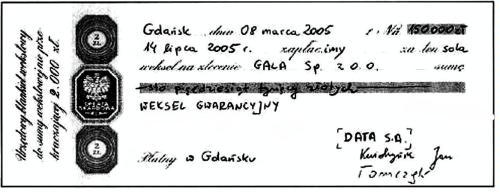 Urzędowy blankiet wekslowy
do sumy wekslowej nie prze-
kraczającej 2.000 zł.
2
ZŁ
OPŁATA
SKARBOWA
2
ZŁ
Gdańsk dnia 08 marca 2005 r. Na 150 000 zł
14 lipca 2005 r. zapłac.imy za ten sola
weksel na zlecenie GALA Sp. z o.o. sumę
sto pięćdziesiąt tysięcy złotych
WEKSEL GWARANCYJNY
Płatny w Gdańsku
DATA S.A.
Jan